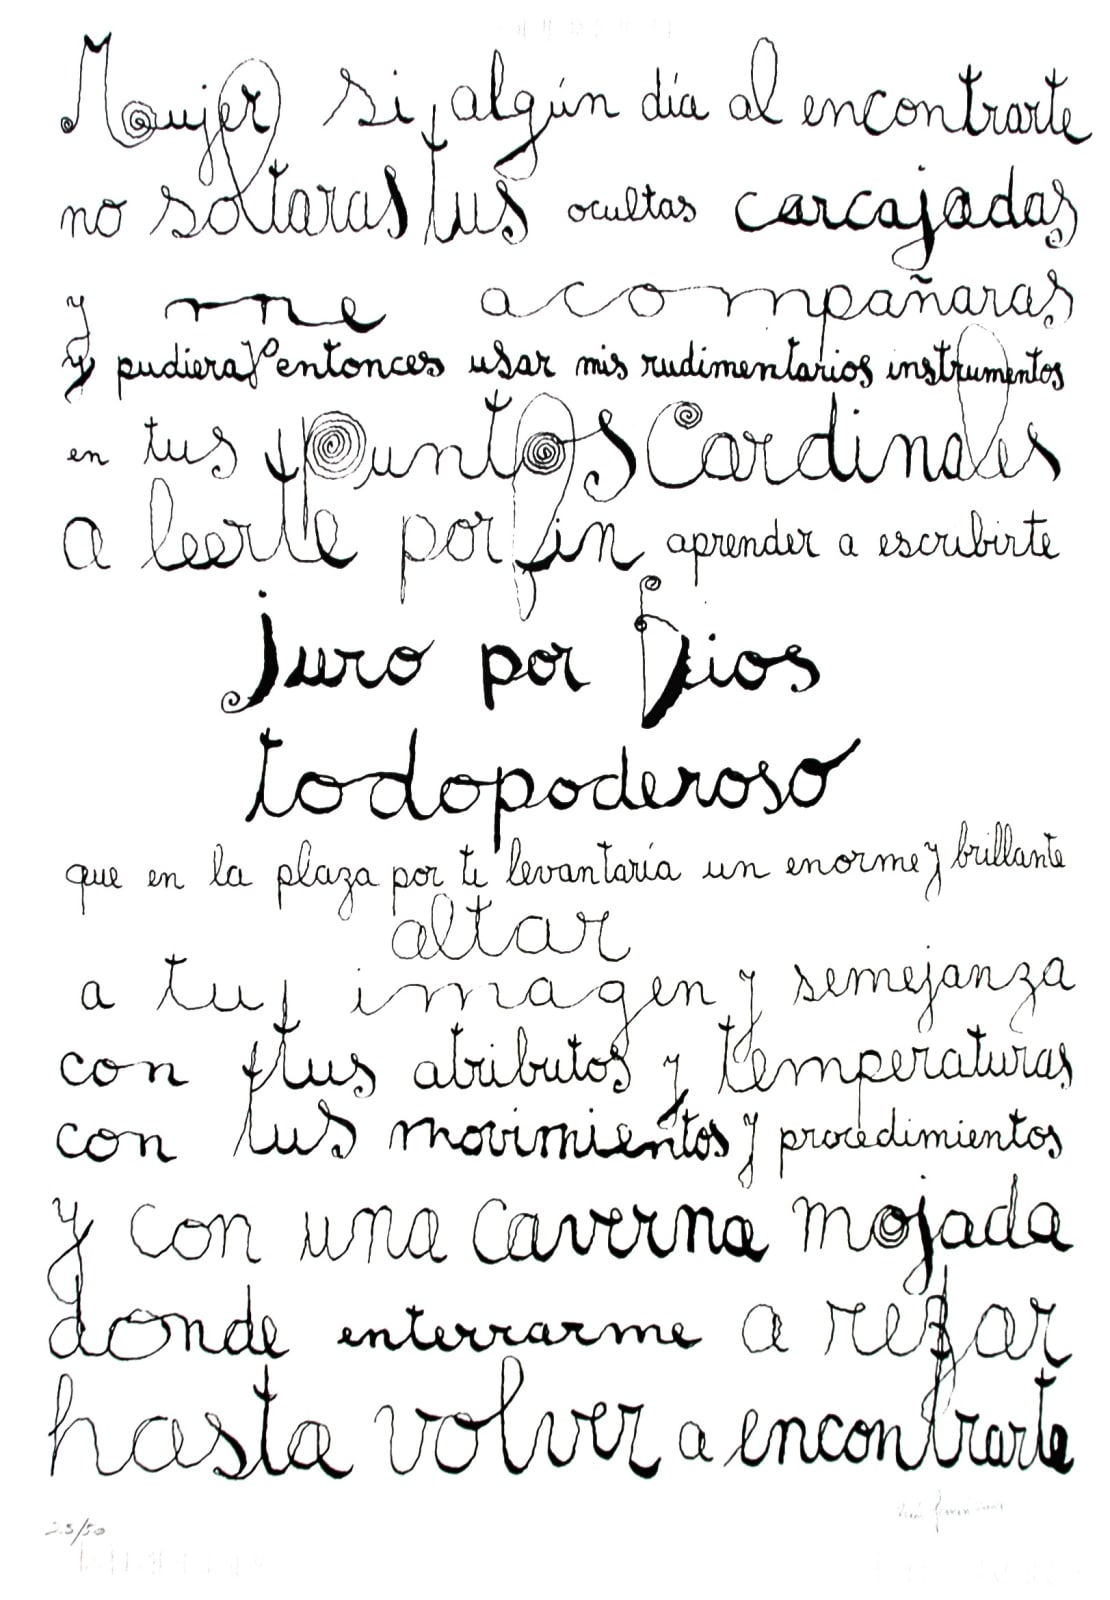 Mujer si algún día al encontrarte
no soltaras tus ocultas carcajadas
y me acompañaras
y pudiera entonces usar mis rudimentarios instrumentos
en tus puntos Cardinales
a leerte por fin aprender a escribirte
juro por Dios
todopoderoso
que en la plaza por ti levantaría un enorme y brillante
altar
a tu imagen y semejanza
con tus atributos y temperaturas
con tus movimientos y procedimientos
y con una caverna mojada
donde enterrarme a rezar
hasta volver a encontrarte
25/50